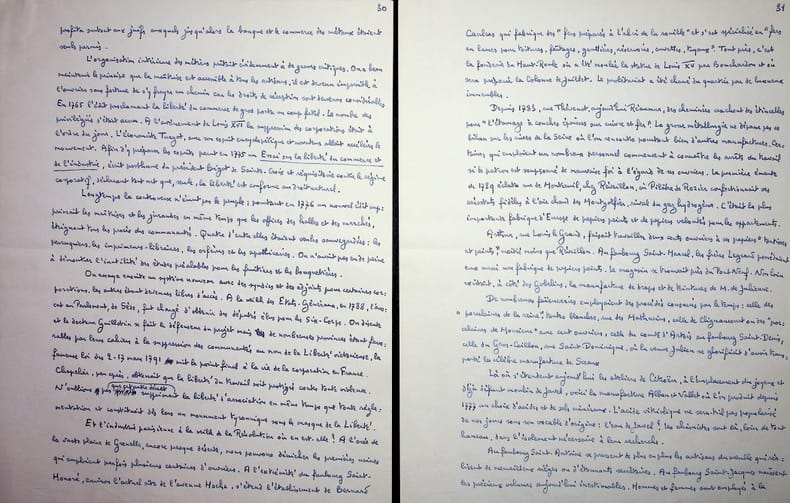 30
profita surtout aux juifs auxquels jusqu'alors la banque et le commerce des métaux étaient
seuls permis.
L'organisation intérieure des métiers prêtait évidemment à de graves critiques. On a beau
maintenir le principe que la maîtrise est accessible à tous les artisans, il est devenu impossible à
l'ouvrier sans fortune de s'y frayer un chemin car les droits de réception sont devenus considérables
En 1765 l'état proclamant la liberté du commerce de gros porta un coup fatal. Le nombre des
privilégiés s'était accru. A l'avènement de Louis XVI la suppression des corporations était à
l'ordre du jour. L'économiste Turgot, avec son esprit encyclopédique et novateur allait accélérer le
mouvement. Afin d'y préparer les esprits parut en 1775 un Essai sur la liberté du commerce et
de l'industrie, écrit posthume du président Bigot de Sainte-Croix et réquisitoire contre le régime
corporatif, déclarant tout net que, seule, la liberté est conforme au droit naturel.
Longtemps la controverse n'émut pas le peuple; pourtant en 1776 un nouvel édit sup-
primait les maîtrises et les jurandes en même temps que les offices des halles et des marchés,
éteignant tous les procès des communautés. Quatre d'entre elles étaient seules sauvegardées: les
perruquiers, les imprimeurs-libraires, les orfèvres et les apothicaires. On n'avait pas eu de peine
à démontrer l'inutilité des études préalables pour les fruitières et les bouquetières.
On essaya ensuite un système nouveau avec des syndics et des adjoints pour certaines cor-
porations, les autres étant devenues libres d'accès. A la veille des Etats-Généraux, en 1788, l'avo-
cat au Parlement, de Sèze, fut chargé d'obtenir des députés élus pour les Six-Corps. On discuta
et le docteur Guillotin se fit le défenseur du projet mais de nombreuses provinces étant favo-
rables par leurs cahiers à la suppression des communautés au nom de la Liberté victorieuse, la
fameuse loi du 2-17 mars 1791 mit le point final à la vie de la corporation en France.
Chapelier, peu après, obtenait que la liberté du travail soit protégée contre toute violence.
N'oublions pas que cet autre décret supprimant la liberté d'association en même temps que toute régle-
mentation et constituait dès lors un monument tyrannique sous le masque de la Liberté.
Et l'industrie parisienne à la veille de la Révolution où en est-elle ? A l'orée de
la vaste plaine de Grenelle, encore presque déserte, nous pouvons dénicher les premières usines
qui emploient parfois plusieurs centaines d'ouvriers. A l'extrémité du faubourg Saint-
Honoré, environ l'actuel site de l'avenue Hoche, s'étend l'établissement de Bernard
31
Caulars qui fabrique des "fers préparés à l'abri de la rouille" et s'est spécialisé en "fers
en lames pour toitures, faîtages, gouttières, réservoirs, cuvettes, tuyaux". Tout près, c'est
la fonderie du Haut-Roule où a été moulée la statue de Louis XV par Bouchardon et où
sera préparée la Colonne de Juillet. Le prolétariat a été chassé du quartier par de luxueux
immeubles.
Depuis 1783, rue Thévenot, aujourd'hui Réaumur, des cheminées crachent des étincelles
pour "l'étamage à couches épaisses sur cuivre et fer". La grosse métallurgie ne dépasse pas ce
bilan sur les rives de la Seine où l'on rencontre pourtant bien d'autres manufactures. Cer-
taines qui emploient un nombreux personnel commencent à connaître les arrêts du travail
si le patron est soupçonné de mauvaise foi à l'égard de ses ouvriers. La première émeute
de 1789 éclata rue de Montreuil, chez Réveillon, où Pilâtre de Rozier confectionnait ses
aérostats fidèles à l'air chaud des Montgolfier, rival du gaz hydrogène. C'était la plus
importante fabrique d'Europe de papiers peints et de papiers veloutés pour les appartements.
Arthur, rue Louis le Grand, faisait travailler deux cents ouvriers à ses papiers "tontisses
et peints", moitié moins que Réveillon. Au faubourg Saint-Marcel, les frères Legrand possédaient
eux aussi une fabrique de papiers peints. Le magasin se trouvait près du Pont Neuf. Non loin
existait, à côté des Gobelins, la manufacture de draps et de teintures de M. de Julienne.
De nombreuses faïenceries employaient des procédés consacrés par le temps: celle des
"porcelaines de la reine", toutes blanches, rue des Mathurins, celle de Clignancourt ou des "por-
celaines de Monsieur" avec cent ouvriers, celle du comte d'Artois au faubourg Saint-Denis,
celle du Gros-Caillou, rue Saint Dominique, où la veuve Julien se glorifiait d'avoir tenu,
partie la célèbre manufacture de Sceaux
Là où s'étendent aujourd'hui les ateliers de Citroën, à l'emplacement du joyeux et
déjà défunt moulin de Javel, voici la manufacture Alban et Vallet où l'on produit depuis
1777 un choix d'acides et de sels minéraux. L'acide vitriolique ne sera-t-il pas popularisé
de nos jours sous son vocable d'origine: l'eau de Javel ! Les chimistes sont là, loin de tout
hameau, dans l'isolement nécessaire à leurs recherches.
Au faubourg Saint-Antoine se pressent de plus en plus les artisans du meuble qui réa-
lisent de merveilleux sièges ou d'étonnants secrétaires. Au faubourg Saint-Jacques naissent
les précieux volumes aujourd'hui inestimables. Hommes et femmes sont employés à la